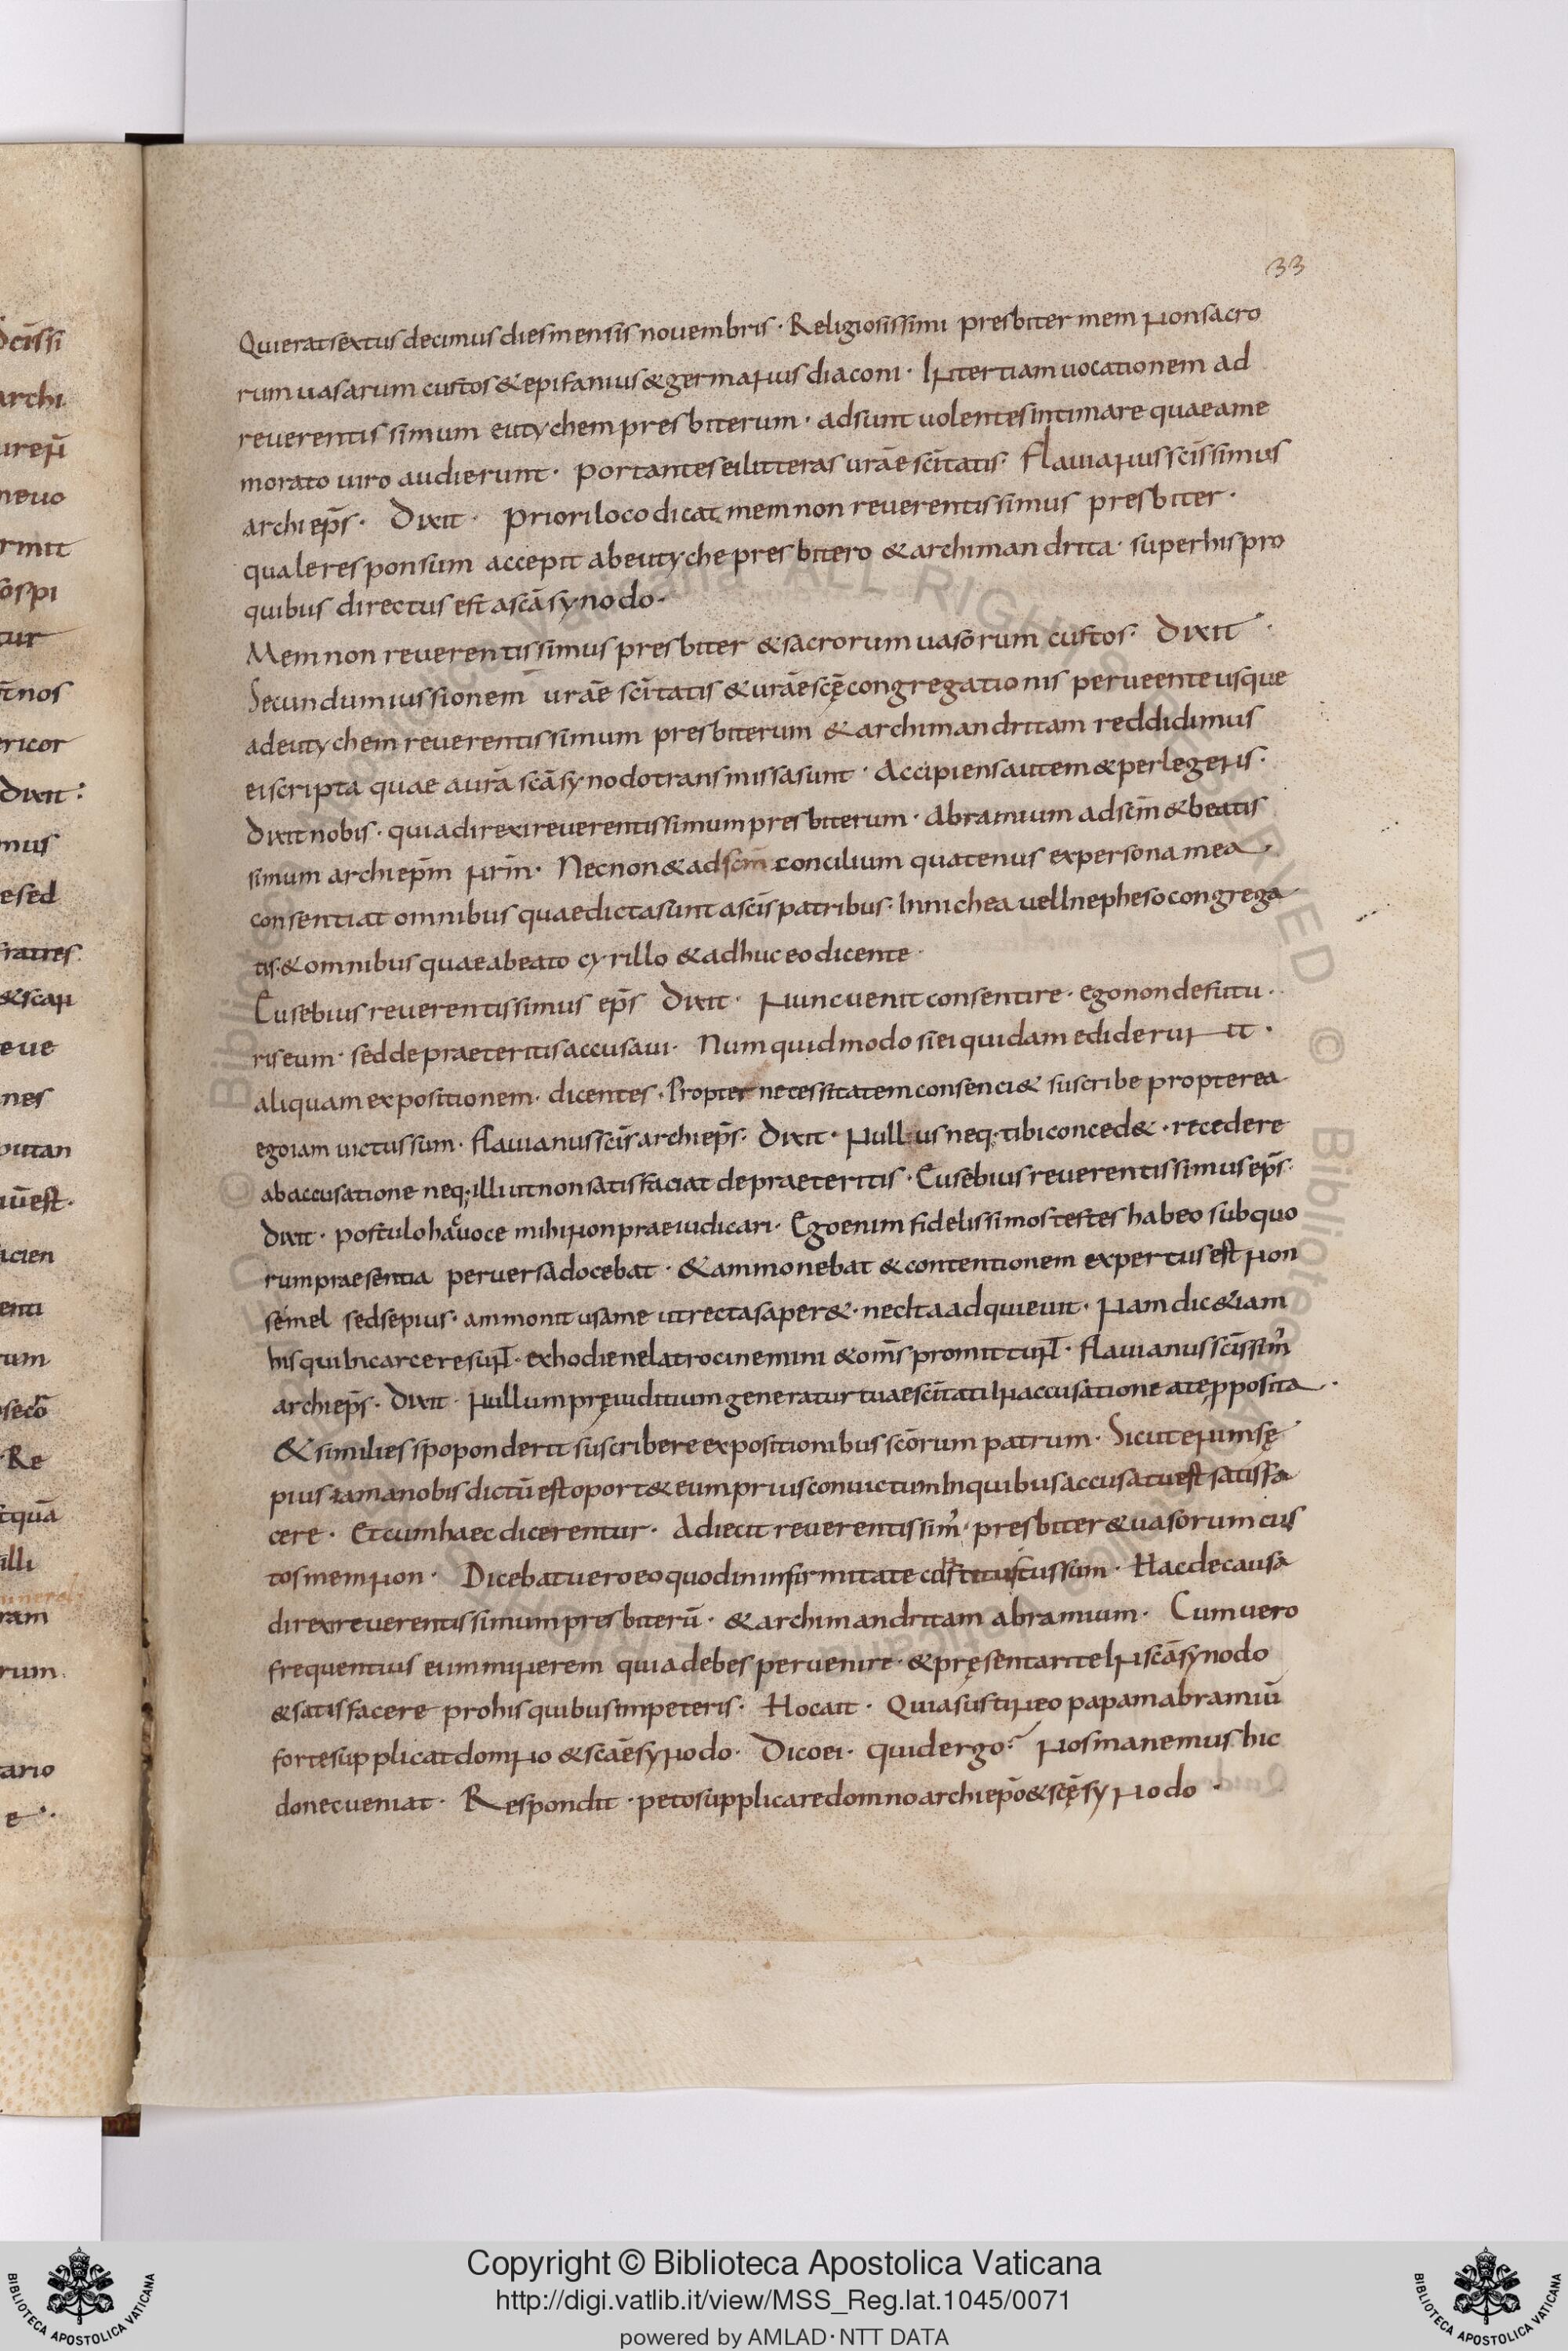 33
Qui erat sextus decimus dies mensis novembris · Religiosissimi presbiter memnon sacro
rum uasarum custos & epifanius & germanus diaconi · In tertiam uocationem ad
reuerentissimum eutychem presbiterum · adsunt uolentes intimare quae a me
morato uiro audierunt · portantes ei litteras urāe sc̄itatis · flauianus sc̄issimus
archiep̄s · Dixit · Priori loco dicat memnon reuerentissimus presbiter ·
quale responsum accepit ab eutyche presbitero & archimandrita · super his pro
quibus directus est a sc̄a synodo ·
Memnon reuerentissimus presbiter & sacrorum uasorum custos · Dixit ·
Secundum iussionem urāe sc̄itatis & urāe sc̄ę congregationis perueente usque
ad eutychem reuerentissimum presbiterum & archimandritam reddidimus
ei scripta quae a ur̄a sc̄a synodo transmissa sunt · Accipiens autem & perlegens ·
Dixit nobis · quia direxi reuerentissimum presbiterum · Abramium ad sc̄m & beatis
simum archiep̄m nr̄m · Necnon & ad sc̄m concilium quatenus ex persona mea ·
consentiat omnibus quae dicta sunt a sc̄is patribus · In nichea uel In epheso congrega
tis · & omnibus quae a beato cyrillo & adhuc eo dicente ·
Eusebius reuerentissimus ep̄s Dixit · Nunc uenit consentire · ego non de futu ·
ris eum · sed de praeteritis accusaui · Num quid modo si ei quidam ediderunt ·
aliquam expositionem · dicentes · Propter necessitatem consenci & suscribe propterea
ego iam uictus sum · flauianus sc̄is archiep̄s · Dixit · Nullus neq; tibi conced& · recedere
ab accusatione neq; illi ut non satisfaciat de praeteritis · Eusebius reuerentissimus ep̄s ·
dixit · postulo hac uoce mihi non praeiudicari · Ego enim fidelissimos testes habeo sub quo
rum praesentia peruersa docebat · & ammonebat & contentionem expertus est non
semel sed sepius · ammonitus a me ut recta saper& · nec Ita adquieuit · Nam dic & iam
his qui In carcere sunt̄ · ex hodie ne latrocinemini & om̄s promittunt̄ · flauianus sc̄issim̄
archiep̄s · Dixit · Nullum pręiuditium generatur tuae sc̄itati In accusatione a te pposita ·
& si milies spoponderit suscribere expositionibus sc̄orum patrum · Sicut enim sę
pius iam a nobis dictū est oport& eum prius conuictum In quibus accusatu est satisfa
cere · Et cum haec dicerentur · Adiecit reuerentissim̄ · presbiter & uasorum cus
tos memnon · Dicebat uero eo quod in infirmitate sum · Hac de causa
direxi reuerentissimum presbiterū · & archimandritam abramium · Cum uero
frequentius eum minerem quia debes peruenire · & pręsentari te In sc̄a synodo
& satisfacere pro his quibus impeteris · Hoc ait · Quia sustineo papam abramiū
forte supplicat domno & sc̄āe synodo · Dico ei · quid ergo? Nos manemus hic
donec ueniat · Respondit · peto supplicare domno archiep̄o & sc̄ę synodo ·
Copyright © Biblioteca Apostolica Vaticana
http://digi.vatlib.it/view/MSS_Reg.lat.1045/0071
powered by AMLAD·NTT DATA
BIBLIOTECA APOSTOLICA VATICANA
BIBLIOTECA APOSTOLICA VATICANA